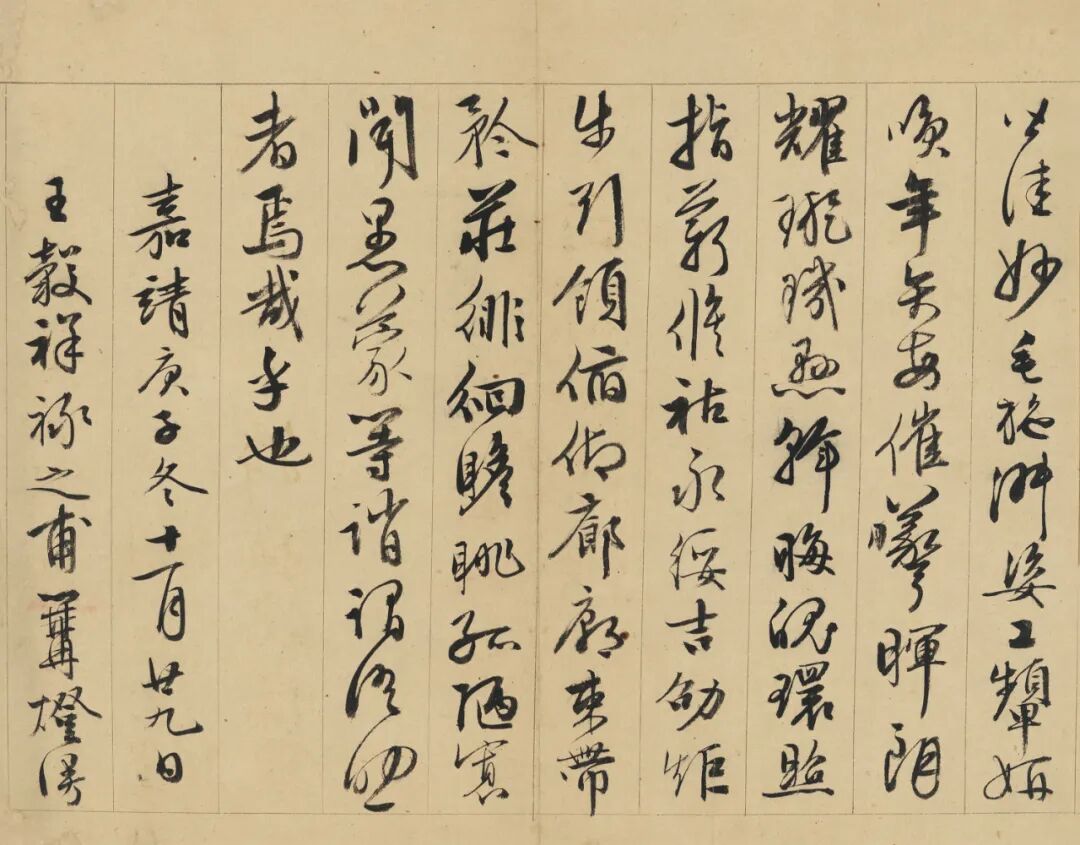 皆佳妙毛施淑姿工顰妍
咲年矢每催曦暉朗
耀璇璣懸斡晦魄環照
指薪脩祜永綏吉劭矩
步引領俯仰廊廟束帶
矜莊徘徊瞻眺孤陋寡
聞愚蒙等誚謂語助
者焉哉乎也
嘉靖庚子冬十一月廿九日
王榖祥祿之甫篝燈